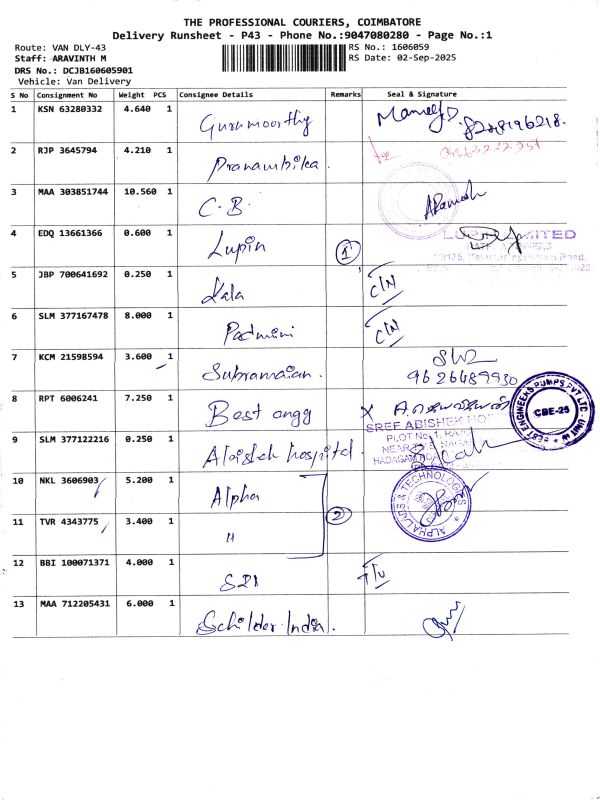 THE PROFESSIONAL COURIERS, COIMBATORE
Delivery Runsheet - P43 - Phone No.:9047080280 - Page No.:1
Route: VAN DLY-43 RS No.: 1606059
Staff: ARAVINTH M RS Date: 02-Sep-2025
DRS No.: DCJB160605901
Vehicle: Van Delivery
S No Consignment No Weight PCS Consignee Details Remarks Seal & Signature
1 KSN 63280332 4.640 1 Gurumoorthy 8248196218.
2 RJP 3645794 4.210 1 Pranambika.
3 MAA 303851744 10.560 1 C.B.
4 EDQ 13661366 0.600 1 Lupin 1 LIMITED
5 JBP 700641692 0.250 1 Kala C/N
6 SLM 377167478 8.000 1 Padmini C/N
7 KCM 21598594 3.600 1 Subramaian.
8 RPT 6006241 7.250 1 Best engg X
BEST ENGINEERS PUMPS PVT LTD
CBE-25
9 SLM 377122216 0.250 1 hospital
SREE ABISHEK
PLOT No 1,
NEAR
10 NKL 3606903 5.200 1 Alpha 2
ALPHA LABS & TECHNOLOGIES
11 TVR 4343775 3.400 1 "
12 BBI 100071371 4.000 1
13 MAA 712205431 6.000 1 Schilder India.